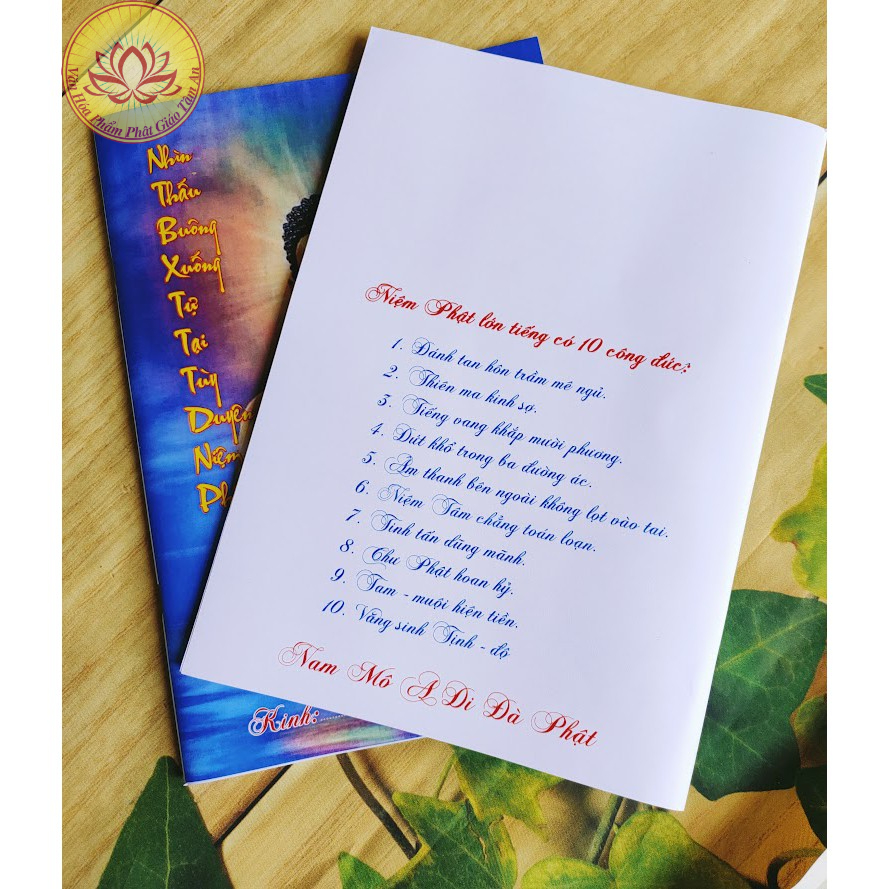 Văn Hóa Phẩm Phật Giáo Tâm An
Nhìn
Thấu
Buông
Xuống
Tự
Tại
Tùy
Duyên
Niệm
Kinh:
Niệm Phật lớn tiếng có 10 công đức:
1. Đánh tan hôn trầm mê ngủ.
2. Thiên ma kinh sợ.
3. Tiếng vang khắp mười phương.
4. Dứt khổ trong ba đường ác.
5. Âm thanh bên ngoài không lọt vào tai.
6. Niệm Tâm chẳng toán loạn.
7. Tinh tấn dũng mãnh.
8. Chư Phật hoan hỷ.
9. Tam - muội hiện tiền.
10. Vãng sinh Tịnh - độ
Nam Mô A Di Đà Phật